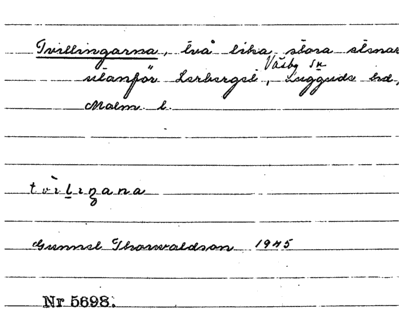 Tvillingarna, två lika stora stenar
utanför Lerberget, Väsby sn
Luggude hd,
Malm. l.
Gunnel Thorwaldson 1945
Nr 5698.